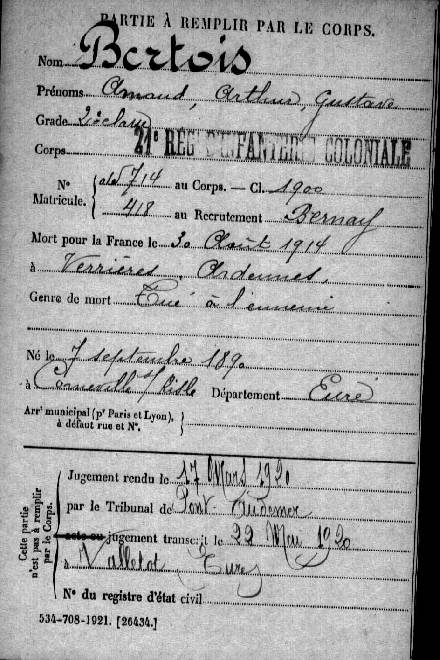 PARTIE À REMPLIR PAR LE CORPS.
Nom Bertois
Prénoms Amand, Arthur, Gustave
Grade 2e classe
Corps 21e RÉG. D'INFANTERIE COLONIALE
No Matricule. 714 au Corps. — Cl. 1900
418 au Recrutement Bernay
Mort pour la France le 30 Août 1914
à Verrières, Ardennes,
Genre de mort Tué à l'ennemi
Né le 7 septembre 1890
à Corneville s/ Risle Département Eure
Arrt municipal (pr Paris et Lyon),
à défaut rue et No.
Cette partie n'est pas à remplir par le Corps.
Jugement rendu le 17 Mars 1920
par le Tribunal de Pont-Audemer
acte ou jugement transcrit le 22 Mai 1920
à Valletot (Eure)
No du registre d'état civil
534-708-1921. [26434.]